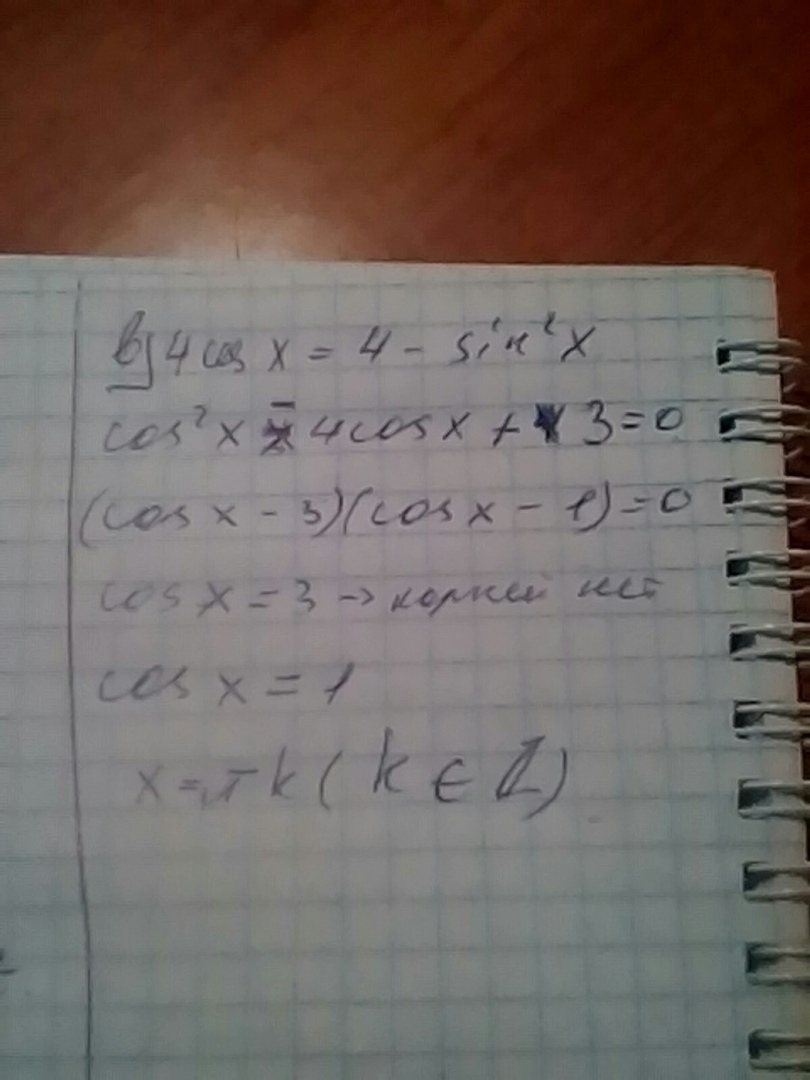 в) 4 cos x = 4 - sin²x
cos²x - 4cosx + 3 = 0
(cos x - 3)(cos x - 1) = 0
cos x = 3 → корней нет
cos x = 1
x = πk (k ∈ Z)